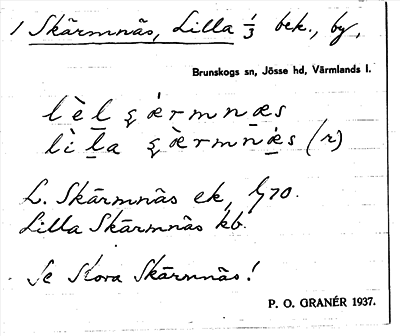 1 Skärmnäs, Lilla 1/3 bek., by,
Brunskogs sn, Jösse hd, Värmlands l.
lèl̠ ʂærmn̠æs
lìl̠a ʂæ̀rmnǽ̠s (r)
L. Skärmnäs ek,
Lilla Skärmnäs kb.
Se Stora Skärmnäs!
P. O. GRANÉR 1937.